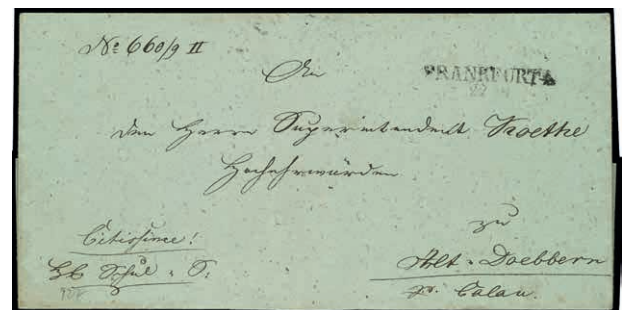 No 660/9 II
An
FRANKFURT A
22
den Herrn Superintendent Koethe
Hochehrwürden
zu
Citissime!
Alt-Doebbern
Schul. S.
pr. Calau.